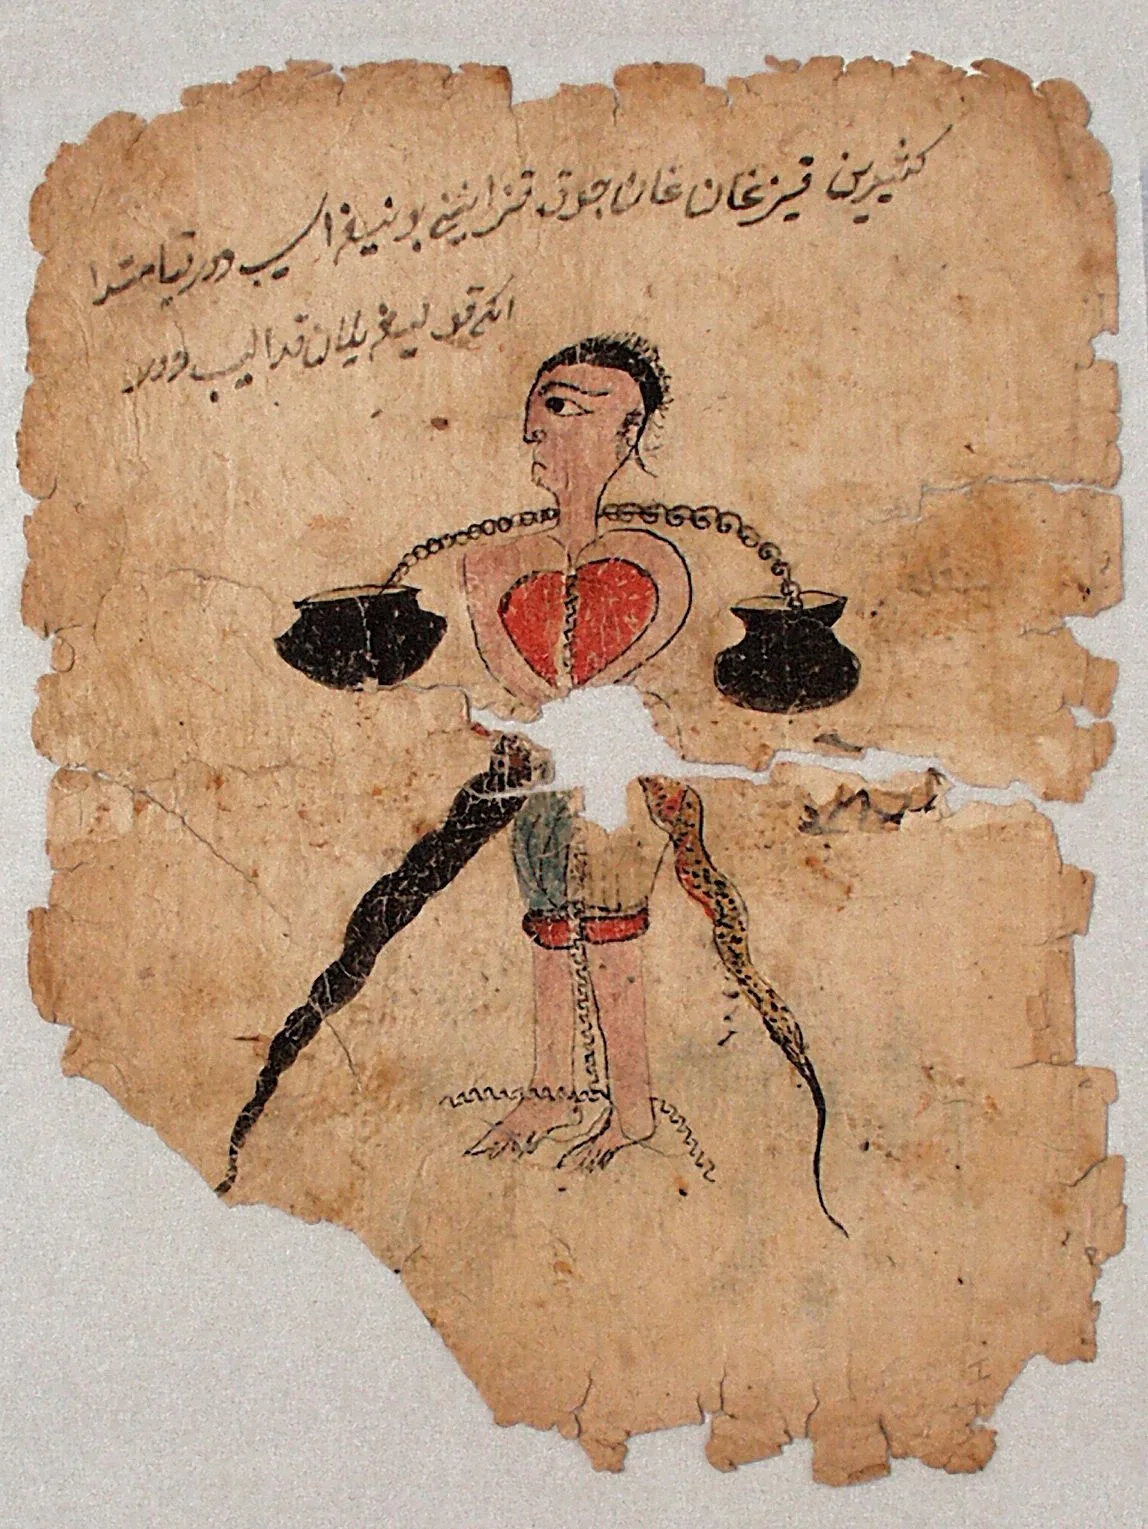 كشيرين قيزغان غان جوق قزانينى بوينيغه اسيب دور قيامتدا
ايكى قوليغه يلان قداليب دور